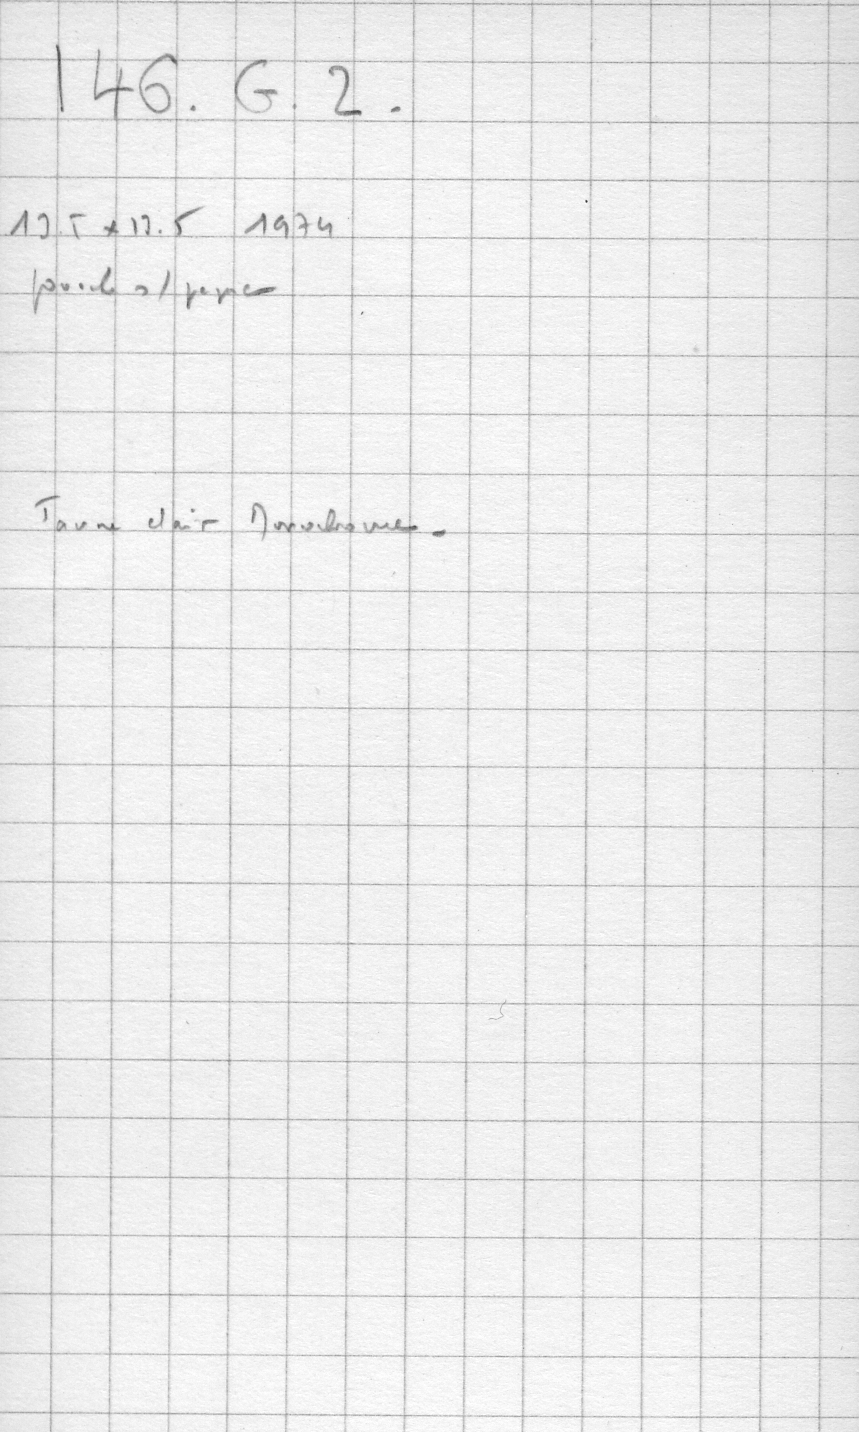 146. G. 2.
13.5 x 13.5 1974
gouache s/ papier
Jaune clair Monochrome.